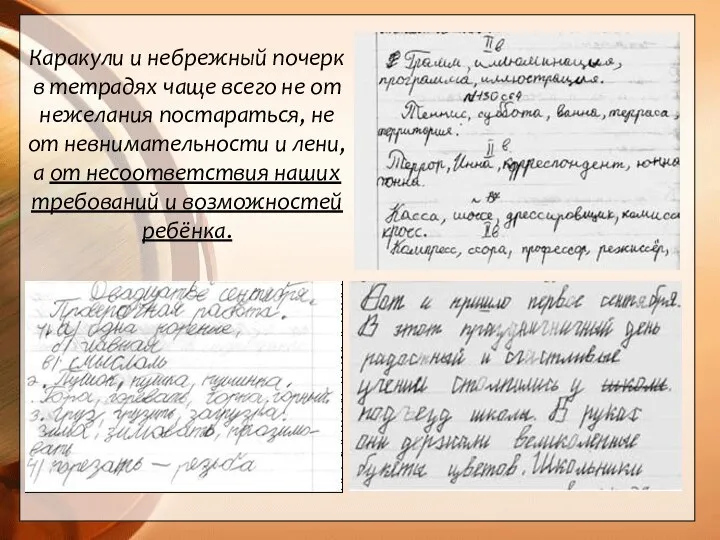 Каракули и небрежный почерк
в тетрадях чаще всего не от
нежелания постараться, не
от невнимательности и лени,
а от несоответствия наших
требований и возможностей
ребёнка.
II в
Грамм, иллюминация,
программа, иллюстрация.
№130 с 64
Теннис, суббота, ванна, терраса,
территория.
II в.
Террор, Инна, корреспондент, юнна
тонна.
Касса, шоссе, дрессировщик, комисс
кросс.
II в.
Компресс, ссора, профессор, режиссёр,
Двадцатье сентября.
Проверочная работа.
1. а) одна корение,
б) главная
в) смыслаль
2. Пушок, пушка, пушинка.
Гора, горевать, горка, горный.
3. Груз, грузить, загрузка.
Зима, зимовать, прозимо-
вать
4) порезать – резьба
Вот и пришло первое сентября.
В этот праздничничный день
радостный и счастливые
учении столпились у школы.
подъезд школы. В руках
они держали великоленые
букеты цветов. Школьники